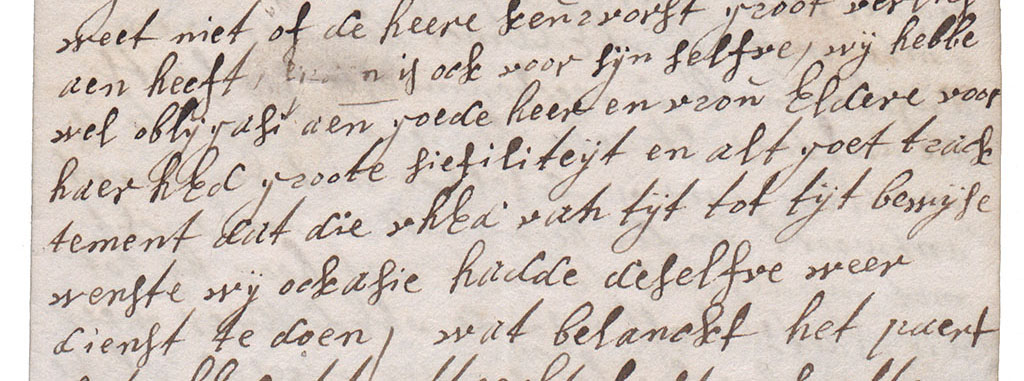 weet niet of de heere keurvorst groot
aen heeft, is ock voor sijn selfve, wij hebbe
wel oblijgasi aen goede heer en vroū Eldere voor
haer hEd groote siefiliteijt en alt goet track
tement dat die vhEd van tijt tot tijt bewijse
wenste wij ockasie hadde deselfve weer
dienst te doen, wat belanckt het paert